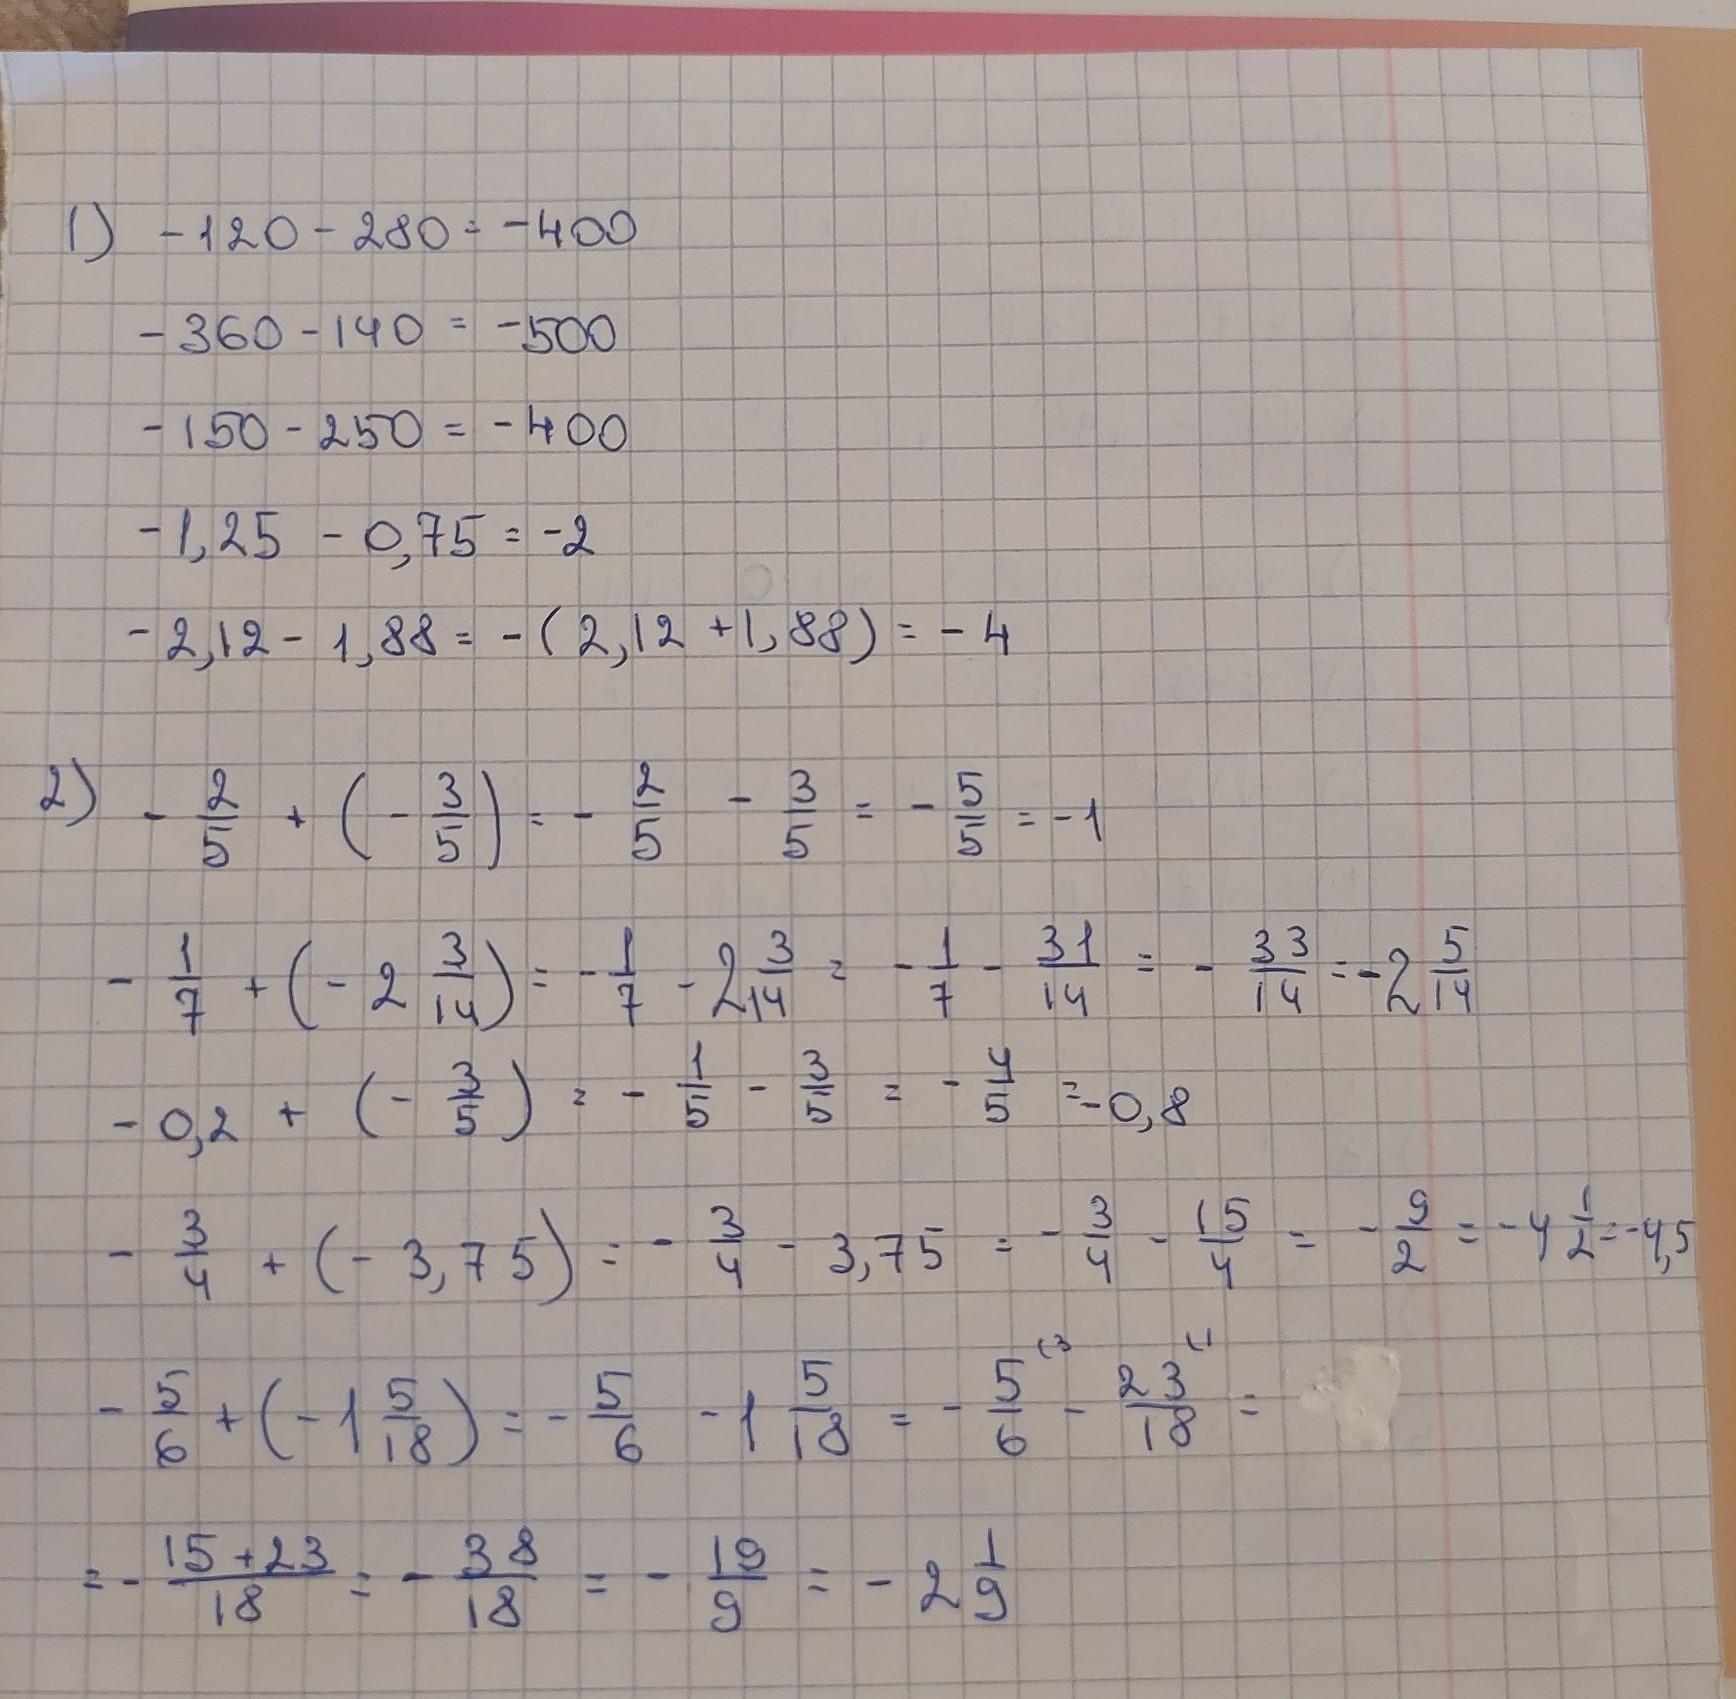 1) -120 - 280 = -400
-360 - 140 = -500
-150 - 250 = -400
-1,25 - 0,75 = -2
-2,12 - 1,88 = -(2,12 + 1,88) = -4
2) - 2/5 + (- 3/5) = - 2/5 - 3/5 = - 5/5 = -1
- 1/7 + (- 2 3/14) = - 1/7 - 2 3/14 = - 1/7 - 31/14 = - 33/14 = -2 5/14
- 0,2 + (- 3/5) = - 1/5 - 3/5 = - 4/5 = -0,8
- 3/4 + (- 3,75) = - 3/4 - 3,75 = - 3/4 - 15/4 = - 9/2 = -4 1/2 = -4,5
- 5/6 + (- 1 5/18) = - 5/6 - 1 5/18 = - 5/6 (3 - 23/18 (1 =
= - 15+23/18 = - 38/18 = - 19/9 = - 2 1/9